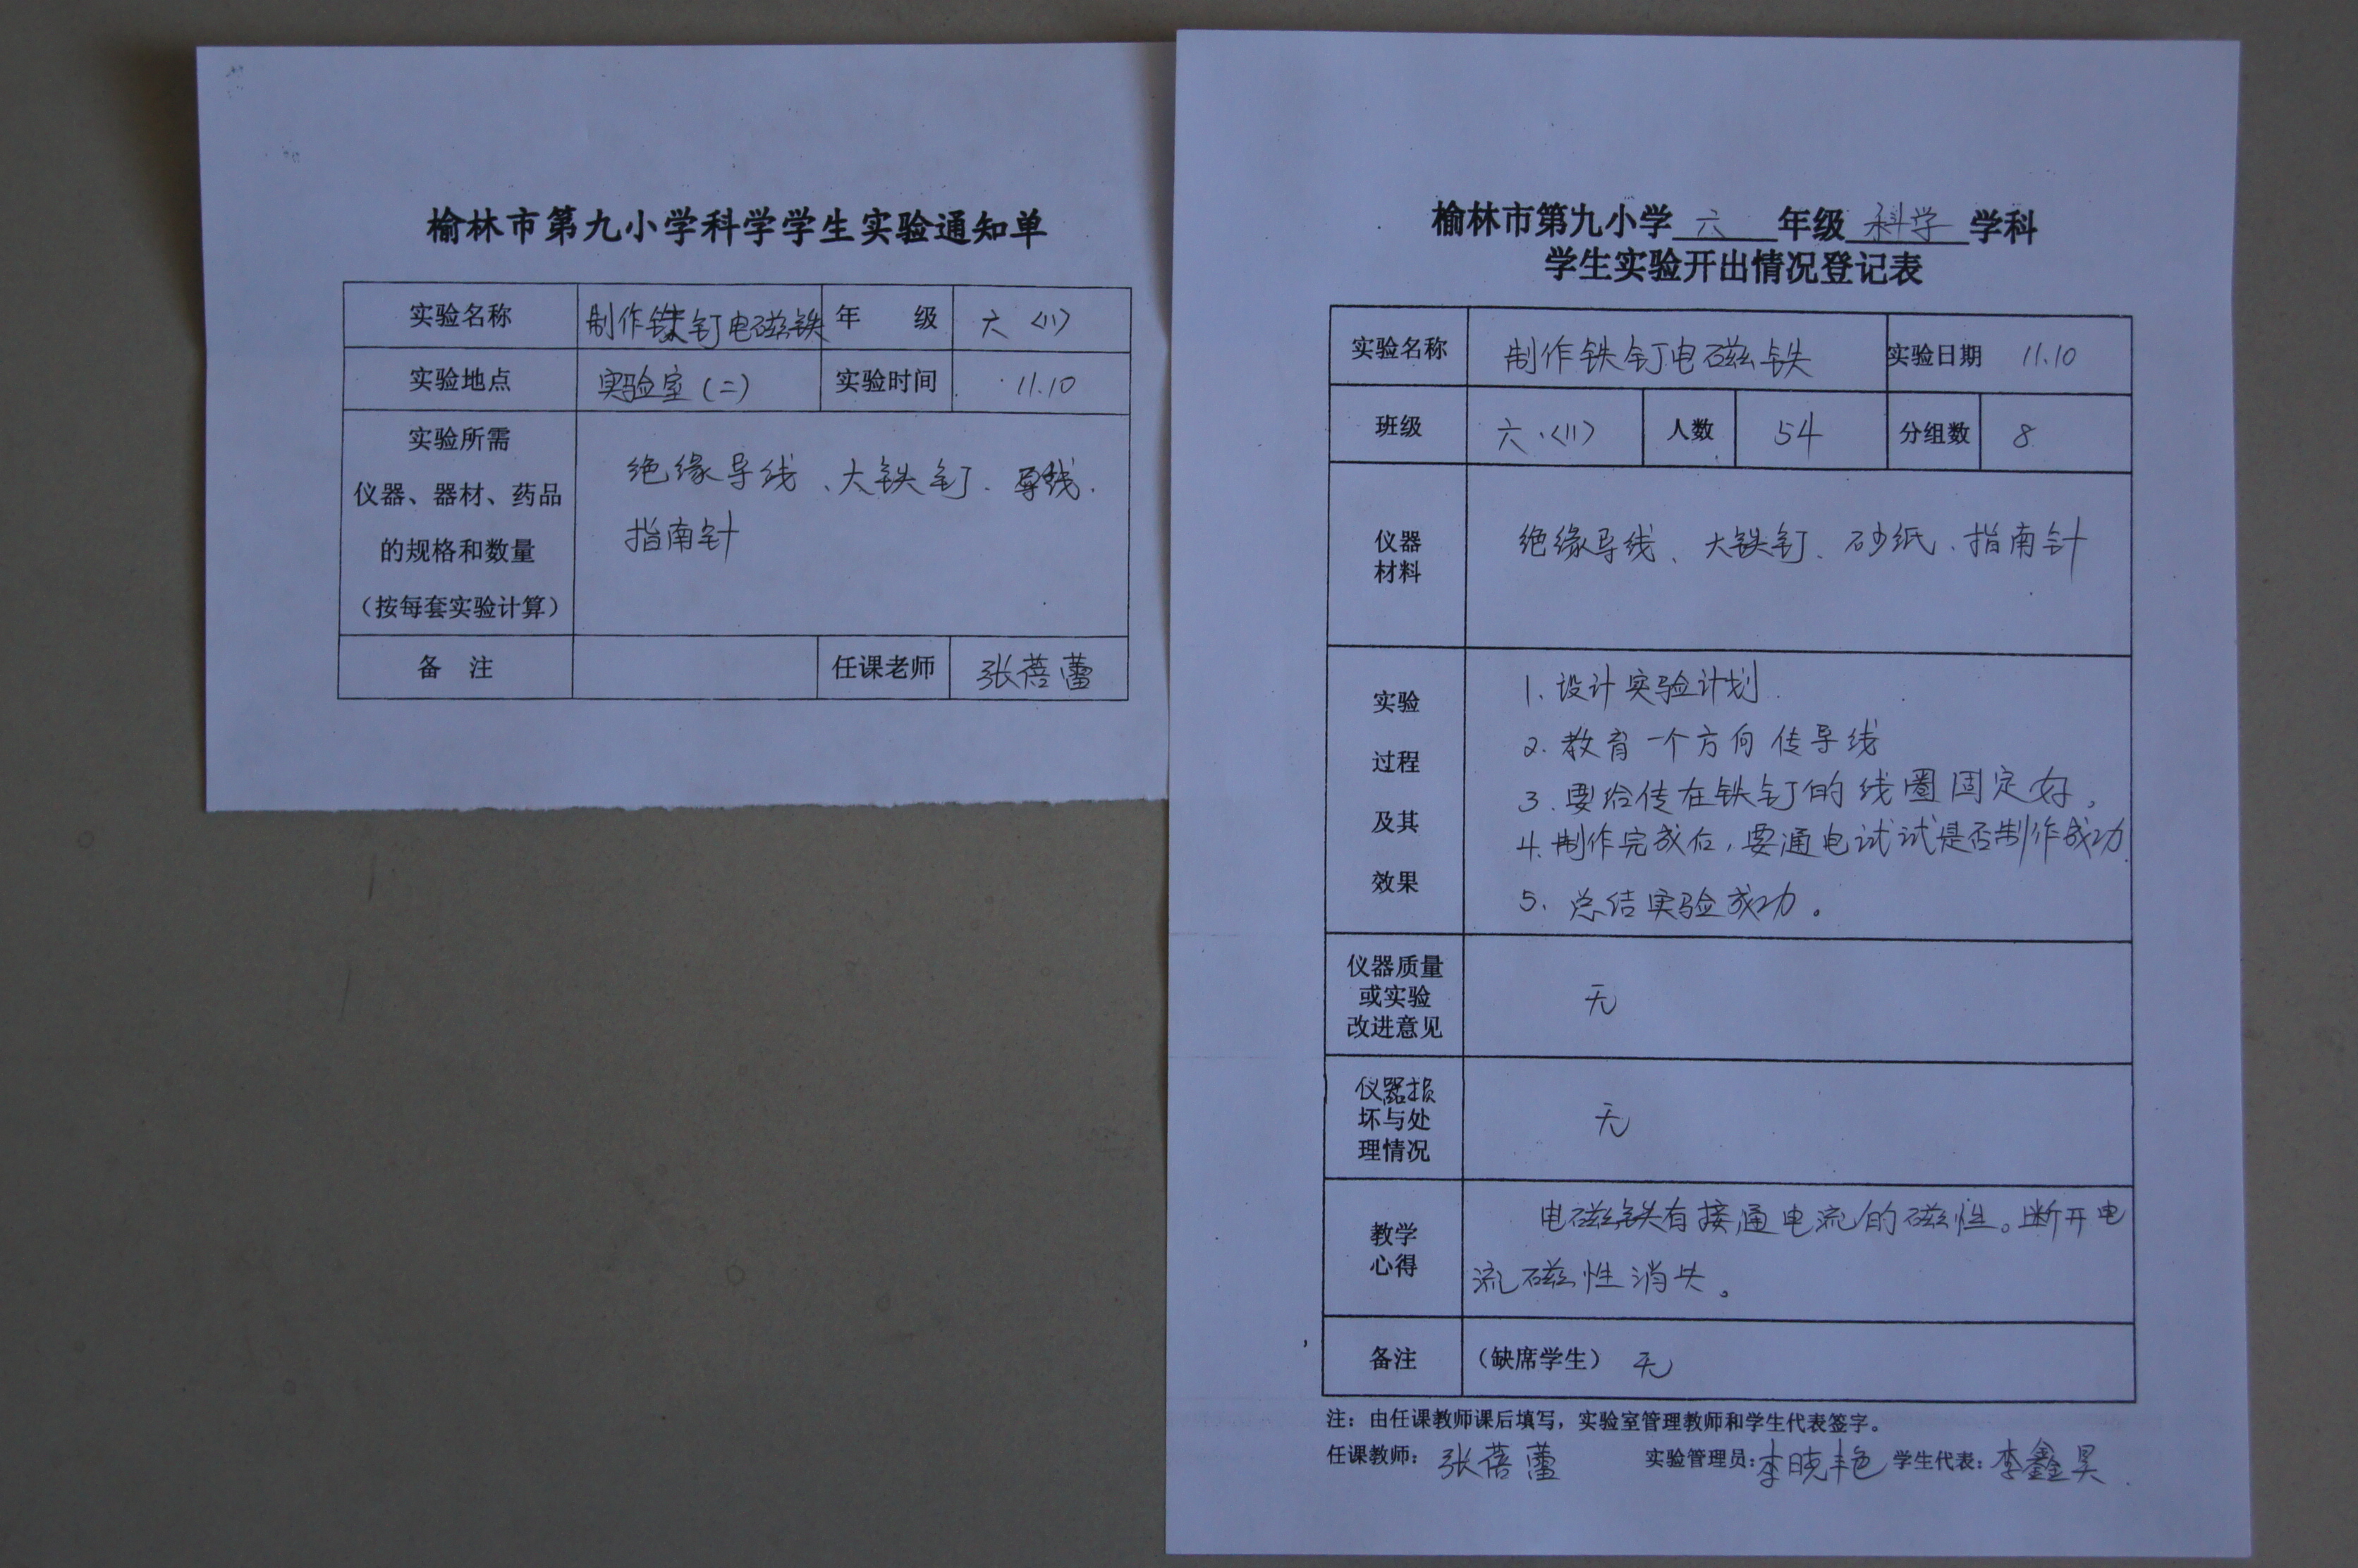 榆林市第九小学科学学生实验通知单
实验名称 制作铁钉电磁铁 年 级 六〈11〉
实验地点 实验室(二) 实验时间 11.10
实验所需
仪器、器材、药品
的规格和数量
（按每套实验计算）
绝缘导线、大铁钉、导线、
指南针
备 注 任课老师 张蓓蕾
榆林市第九小学 六 年级 科学 学科
学生实验开出情况登记表
实验名称 制作铁钉电磁铁 实验日期 11.10
班级 六〈11〉 人数 54 分组数 8
仪器
材料
绝缘导线、大铁钉、砂纸、指南针
实验
过程
及其
效果
1. 设计实验计划
2. 教育一个方向传导线
3. 要给传在铁钉的线圈固定好，
4. 制作完成后，要通电试试是否制作成功
5. 总结实验成功。
仪器质量
或实验
改进意见
无
仪器损
坏与处
理情况
无
教学
心得
电磁铁有接通电流的磁性。断开电
流磁性消失。
备注 （缺席学生） 无
注：由任课教师课后填写，实验室管理教师和学生代表签字。
任课教师：张蓓蕾 实验管理员：李晓艳 学生代表：李鑫昊